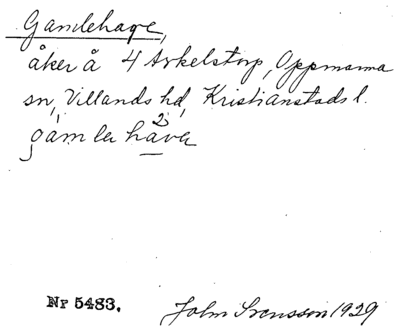 Gamlehage,
åker å 4 Arkelstorp, Oppmanna
sn, Villands hd, Kristianstads l.
gam le havà
Nr 5483. John Svensson 1929